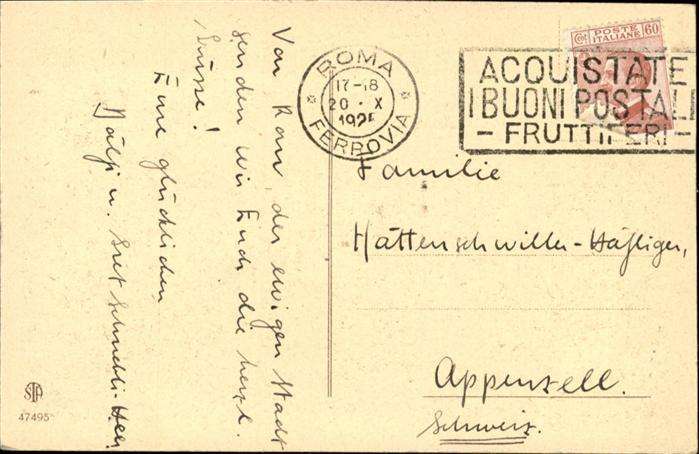 Von Rom der ewigen Stadt
senden wir Euch die herzl.
Grüsse!
Eure glücklichen
u. Schnebli-
STA
47495
ROMA
17-18
20 · X
FERROVIA
POSTE ITALIANE
60
ACQUISTATE
I BUONI POSTALI
- FRUTTIFERI -
Familie
Hättenschwiller-Häfliger,
Appenzell.
Schweiz.